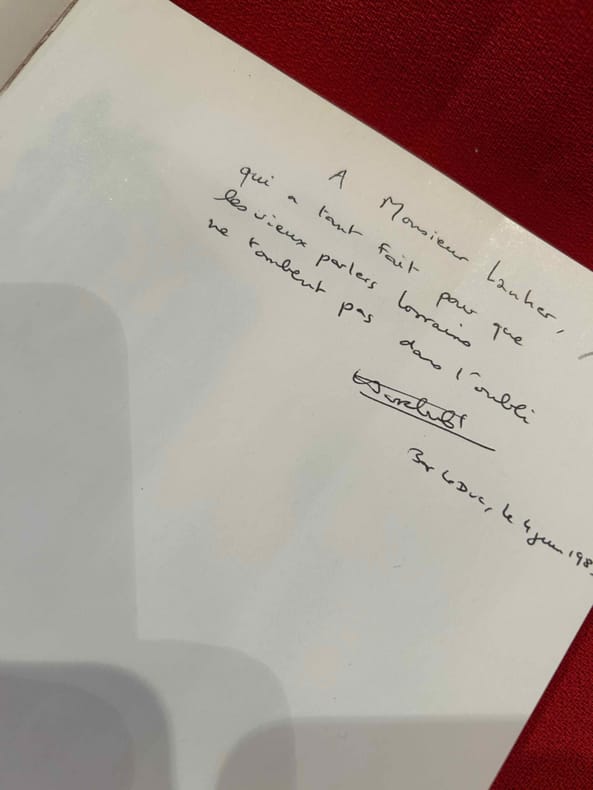 A Monsieur Lanher,
qui a tant fait pour que
les vieux parlers lorrains
ne tombent pas dans l'oubli
Bar Le Duc, le 4 juin